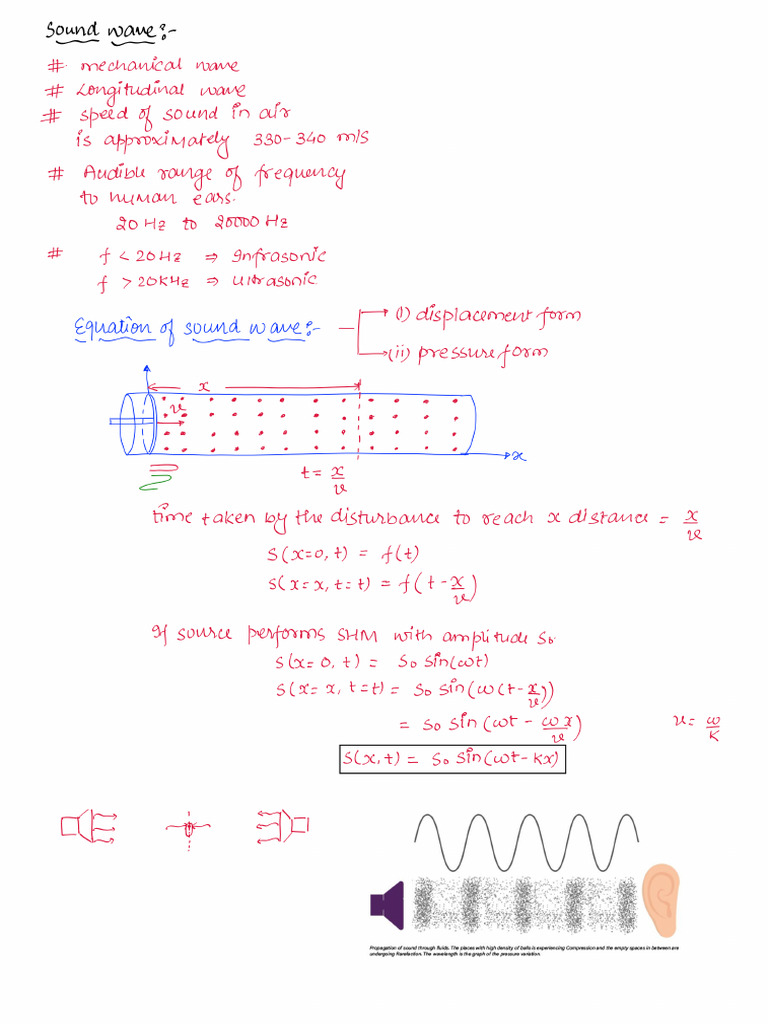 Sound wave:-
# mechanical wave
# Longitudinal wave
# speed of sound in air
is approximately 330-340 m/s
# Audible range of frequency
to human ears.
20 Hz to 20000 Hz
# f < 20Hz ⇒ Infrasonic
f > 20KHz ⇒ Ultrasonic
Equation of sound wave:-
(i) displacement form
(ii) pressure form
x
v
x
t = x/v
time taken by the disturbance to reach x distance = x/v
S(x=0, t) = f(t)
S(x=x, t=t) = f(t - x/v)
If source performs SHM with amplitude S₀
S(x=0, t) = S₀ sin(ωt)
S(x=x, t=t) = S₀ sin(ω(t-x/v))
= S₀ sin(ωt - ωx/v) v = ω/k
S(x,t) = S₀ sin(ωt-kx)
Propagation of sound through fluids. The places with high density of balls is experiencing Compression and the empty spaces in between are
undergoing Rarefaction. The wavelength is the graph of the pressure variation.